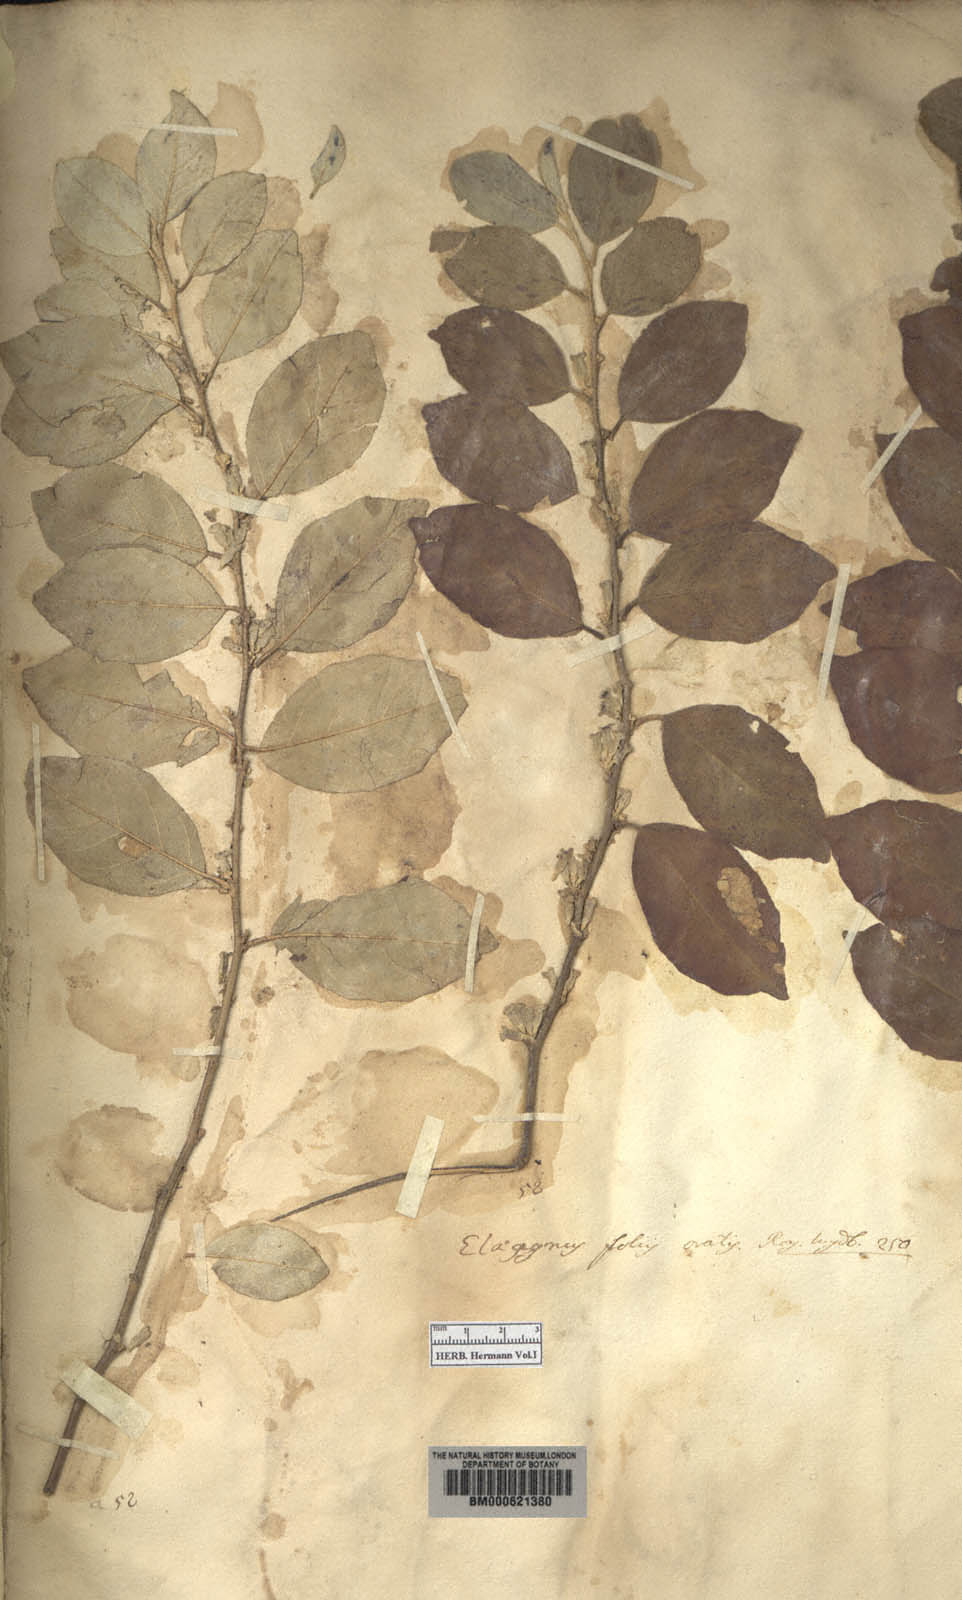 58
Elæagnus foliis ovatis. Roy. lugdb. 250
mm 1 2 3
HERB. Hermann Vol.I
THE NATURAL HISTORY MUSEUM, LONDON
DEPARTMENT OF BOTANY
BM000621380
a 58